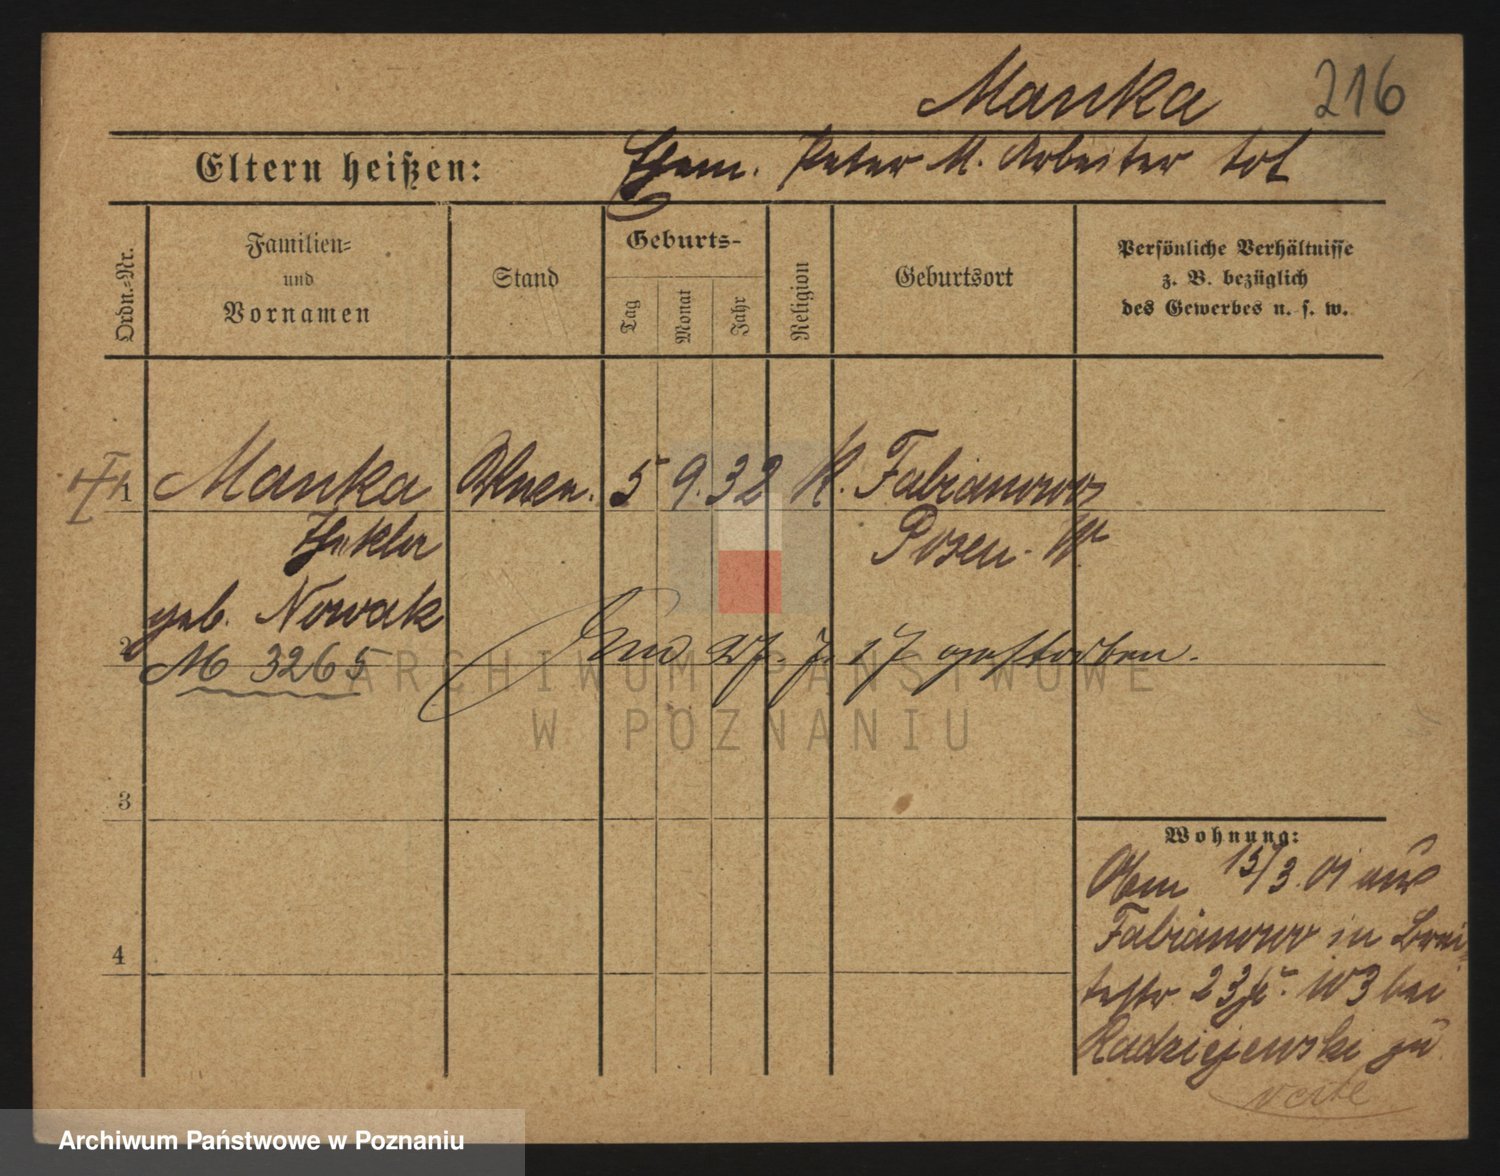 Manka 216
Eltern heißen: Ehem. Peter M. Arbeiter tot
Ordn.-Nr.
Familien-
und
Vornamen
Stand
Geburts-
Tag
Monat
Jahr
Religion
Geburtsort
Persönliche Verhältnisse
z. B. bezüglich
des Gewerbes u. s. w.
1 Manka 5 9. 32 K. Fabianowo
Thekla Posen. W.
geb. Nowak
2
M 3265 27. 7. 17 gestorben.
ARCHIWUM PAŃSTWOWE
W POZNANIU
3
4
Wohnung:
15/3. 01 aus
Fabianowo in Brei
testr 23 III bei
Radziejewski zu
verte
Archiwum Państwowe w Poznaniu